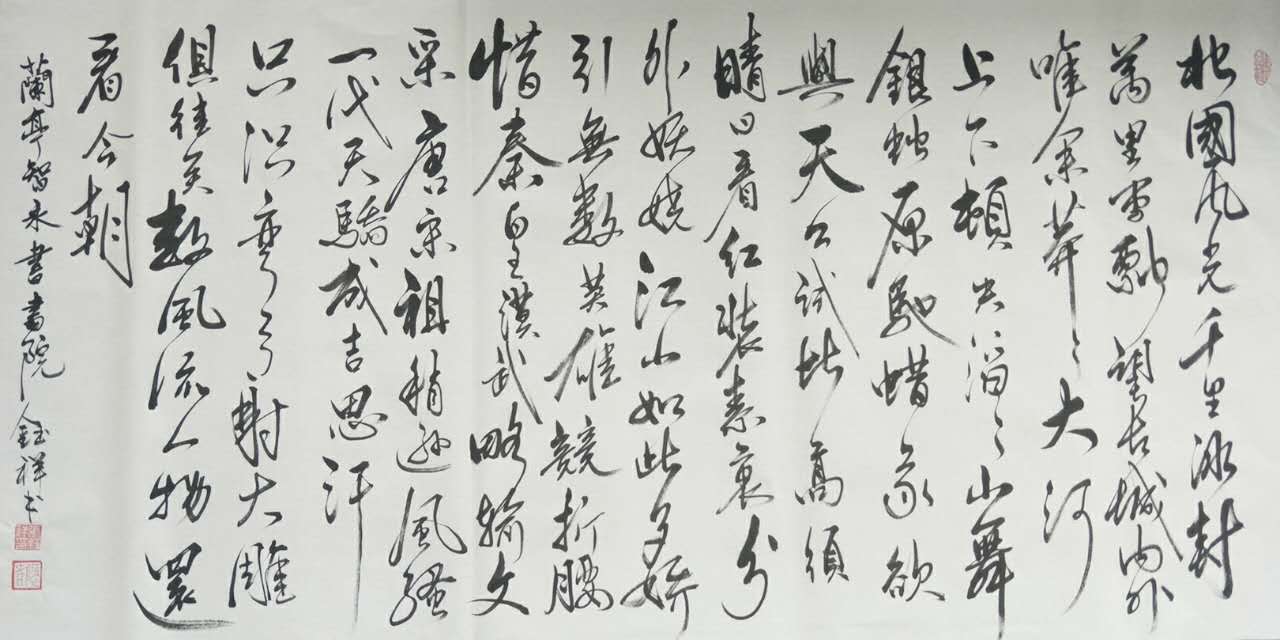 北國風光千里冰封
萬里雪飄望長城內外
唯余莽々大河
上下頓失滔々山舞
銀蛇原馳蜡象欲
與天公試比高須
晴日看紅裝素裹分
外妖嬈江山如此多嬌
引無數英雄競折腰
惜秦皇漢武略輸文
采唐宋祖稍遜風騷
一代天驕成吉思汗
只识彎弓射大雕
俱往矣數風流人物還
看今朝
蘭亭智永書畫院 鈺祥书